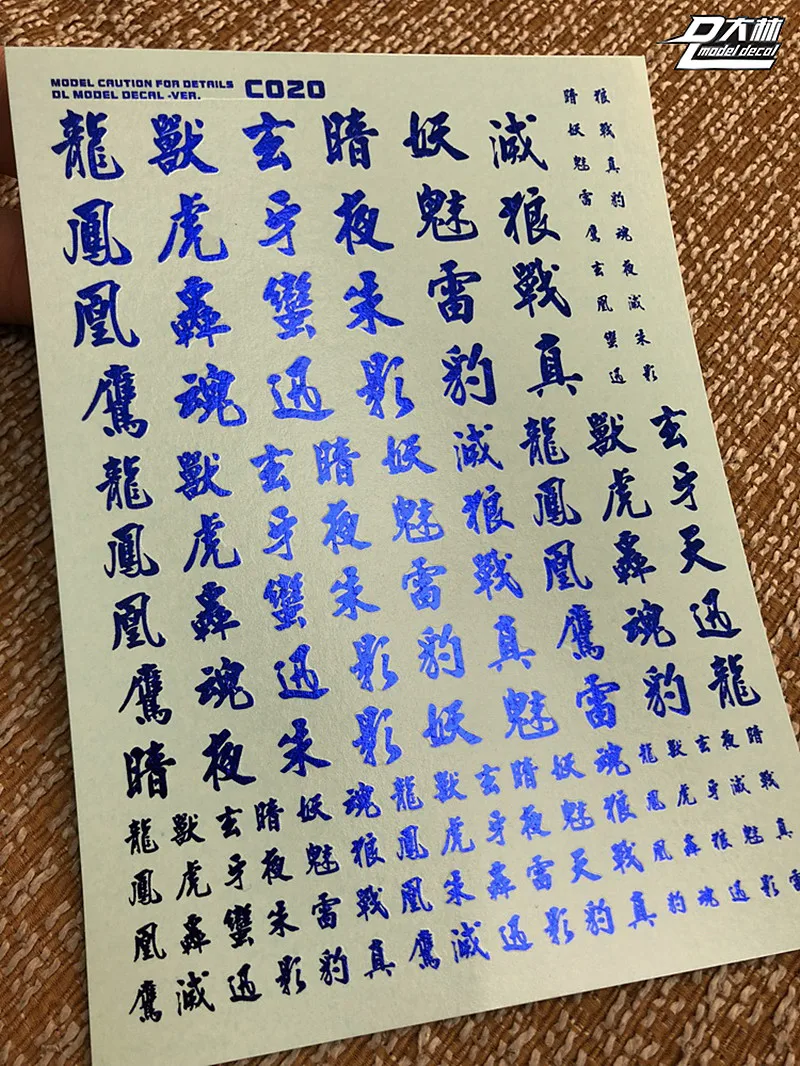 DL大林
model decal
MODEL CAUTION FOR DETAILS
DL MODEL DECAL -VER.
C020
龍獸玄暗妖滅
鳳虎牙夜魅狼
凰轟蠻朱雷戰
鷹魂迅影豹真
暗狼
妖戰
魅真
雷豹
鷹魂
玄夜
凰滅
蠻朱
迅影
龍獸玄暗妖滅龍獸玄
鳳虎牙夜魅狼鳳虎牙
凰轟蠻朱雷戰凰轟天
鷹魂迅影豹真鷹魂迅
暗夜朱影妖魅雷豹龍
龍獸玄暗妖魂龍獸玄暗妖魂龍獸玄夜暗
鳳虎牙夜魅狼鳳虎牙夜魅狼鳳虎牙滅戰
凰轟蠻朱雷戰凰朱轟雷天戰凰轟狼魅真
鷹滅迅影豹真鷹滅迅影豹真豹魂迅影雷